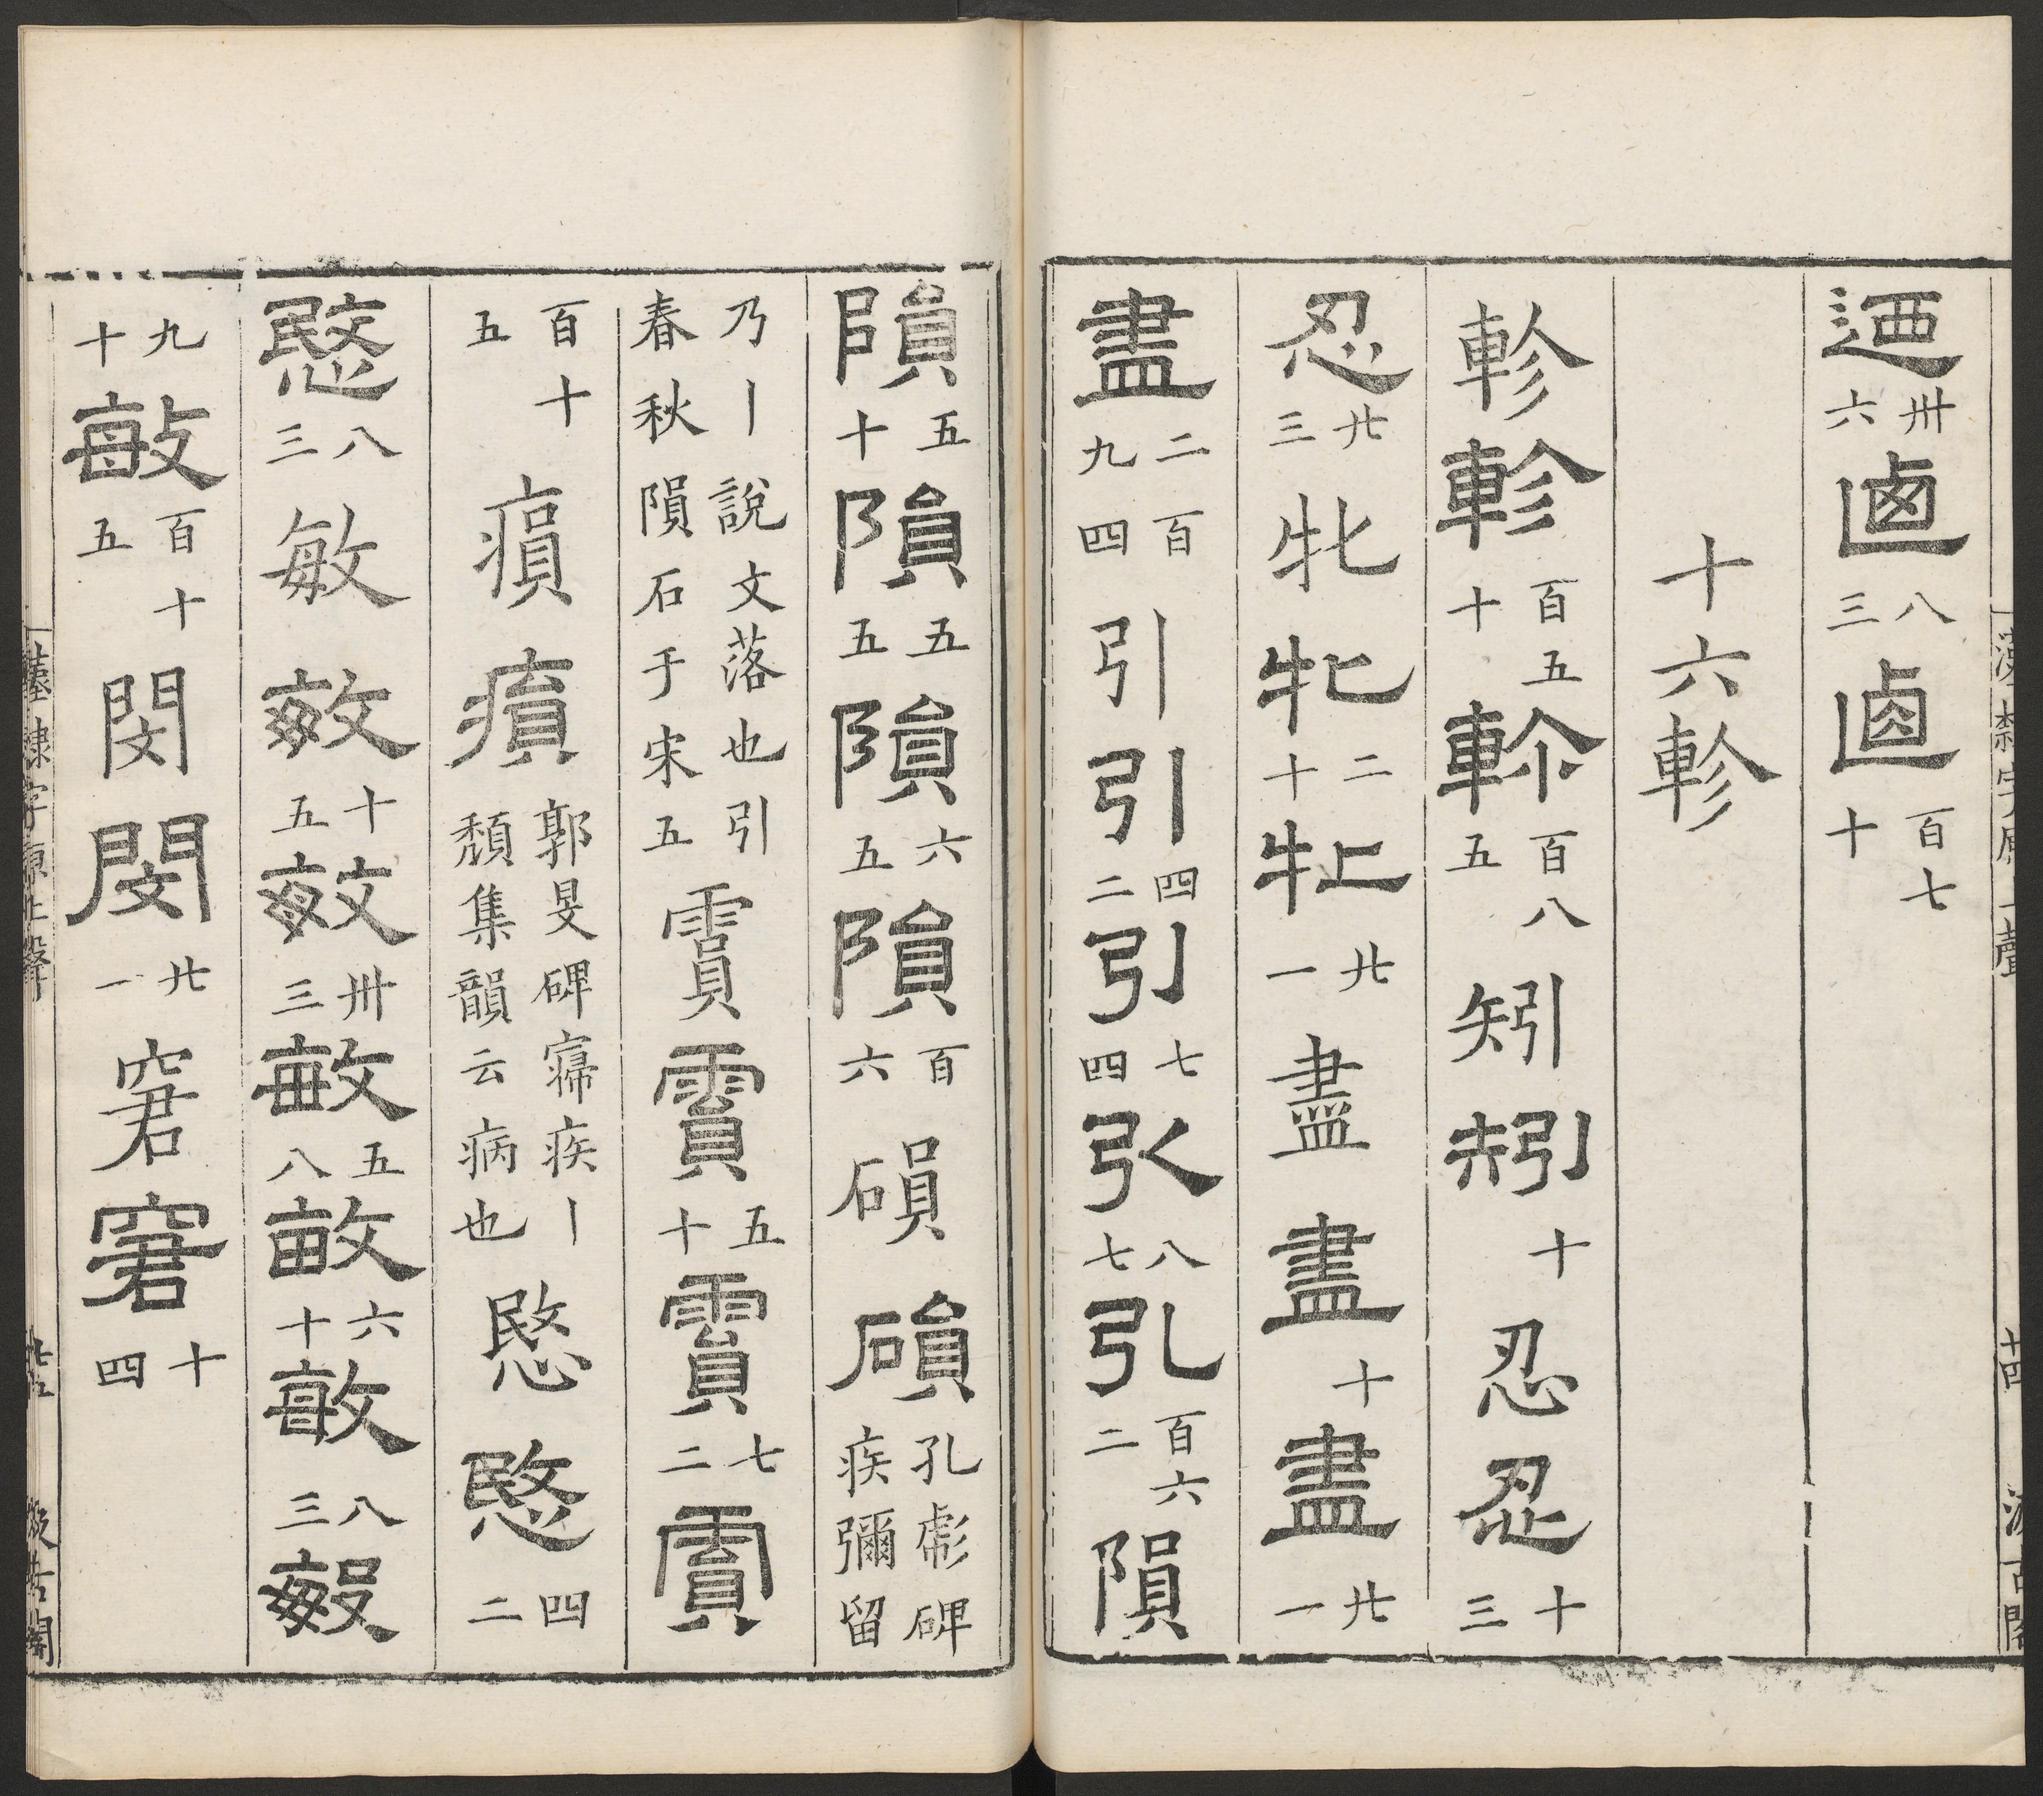 迺卅六 𠧟八三 𠧟百七十
十六軫
軫 軫百五十 軫百八五 矧 矧十 忍 忍十三
忍廿三 牝 牝二十 牝廿一 盡 盡十 盡廿一
盡二九百四 引 引四二 引七四 引八七 引百六二 隕
隕五十 隕五五 隕六五 隕百六 磒 磒孔彪碑疾彌留
乃丨說文落也引春秋隕石于宋五 霣 霣五十 霣七二 霣
百十五 㾓 㾓郭旻碑寢疾丨頹集韻云病也 愍 愍四二
愍八三 敏 敏十五 敏卅三 敏五八 敏六十 敏八三 敏
九十 敏百十五 閔 閔廿一 窘 窘十四
漢隸字原上聲 十四 汲古閣
漢隸字原上聲 十五 汲古閣